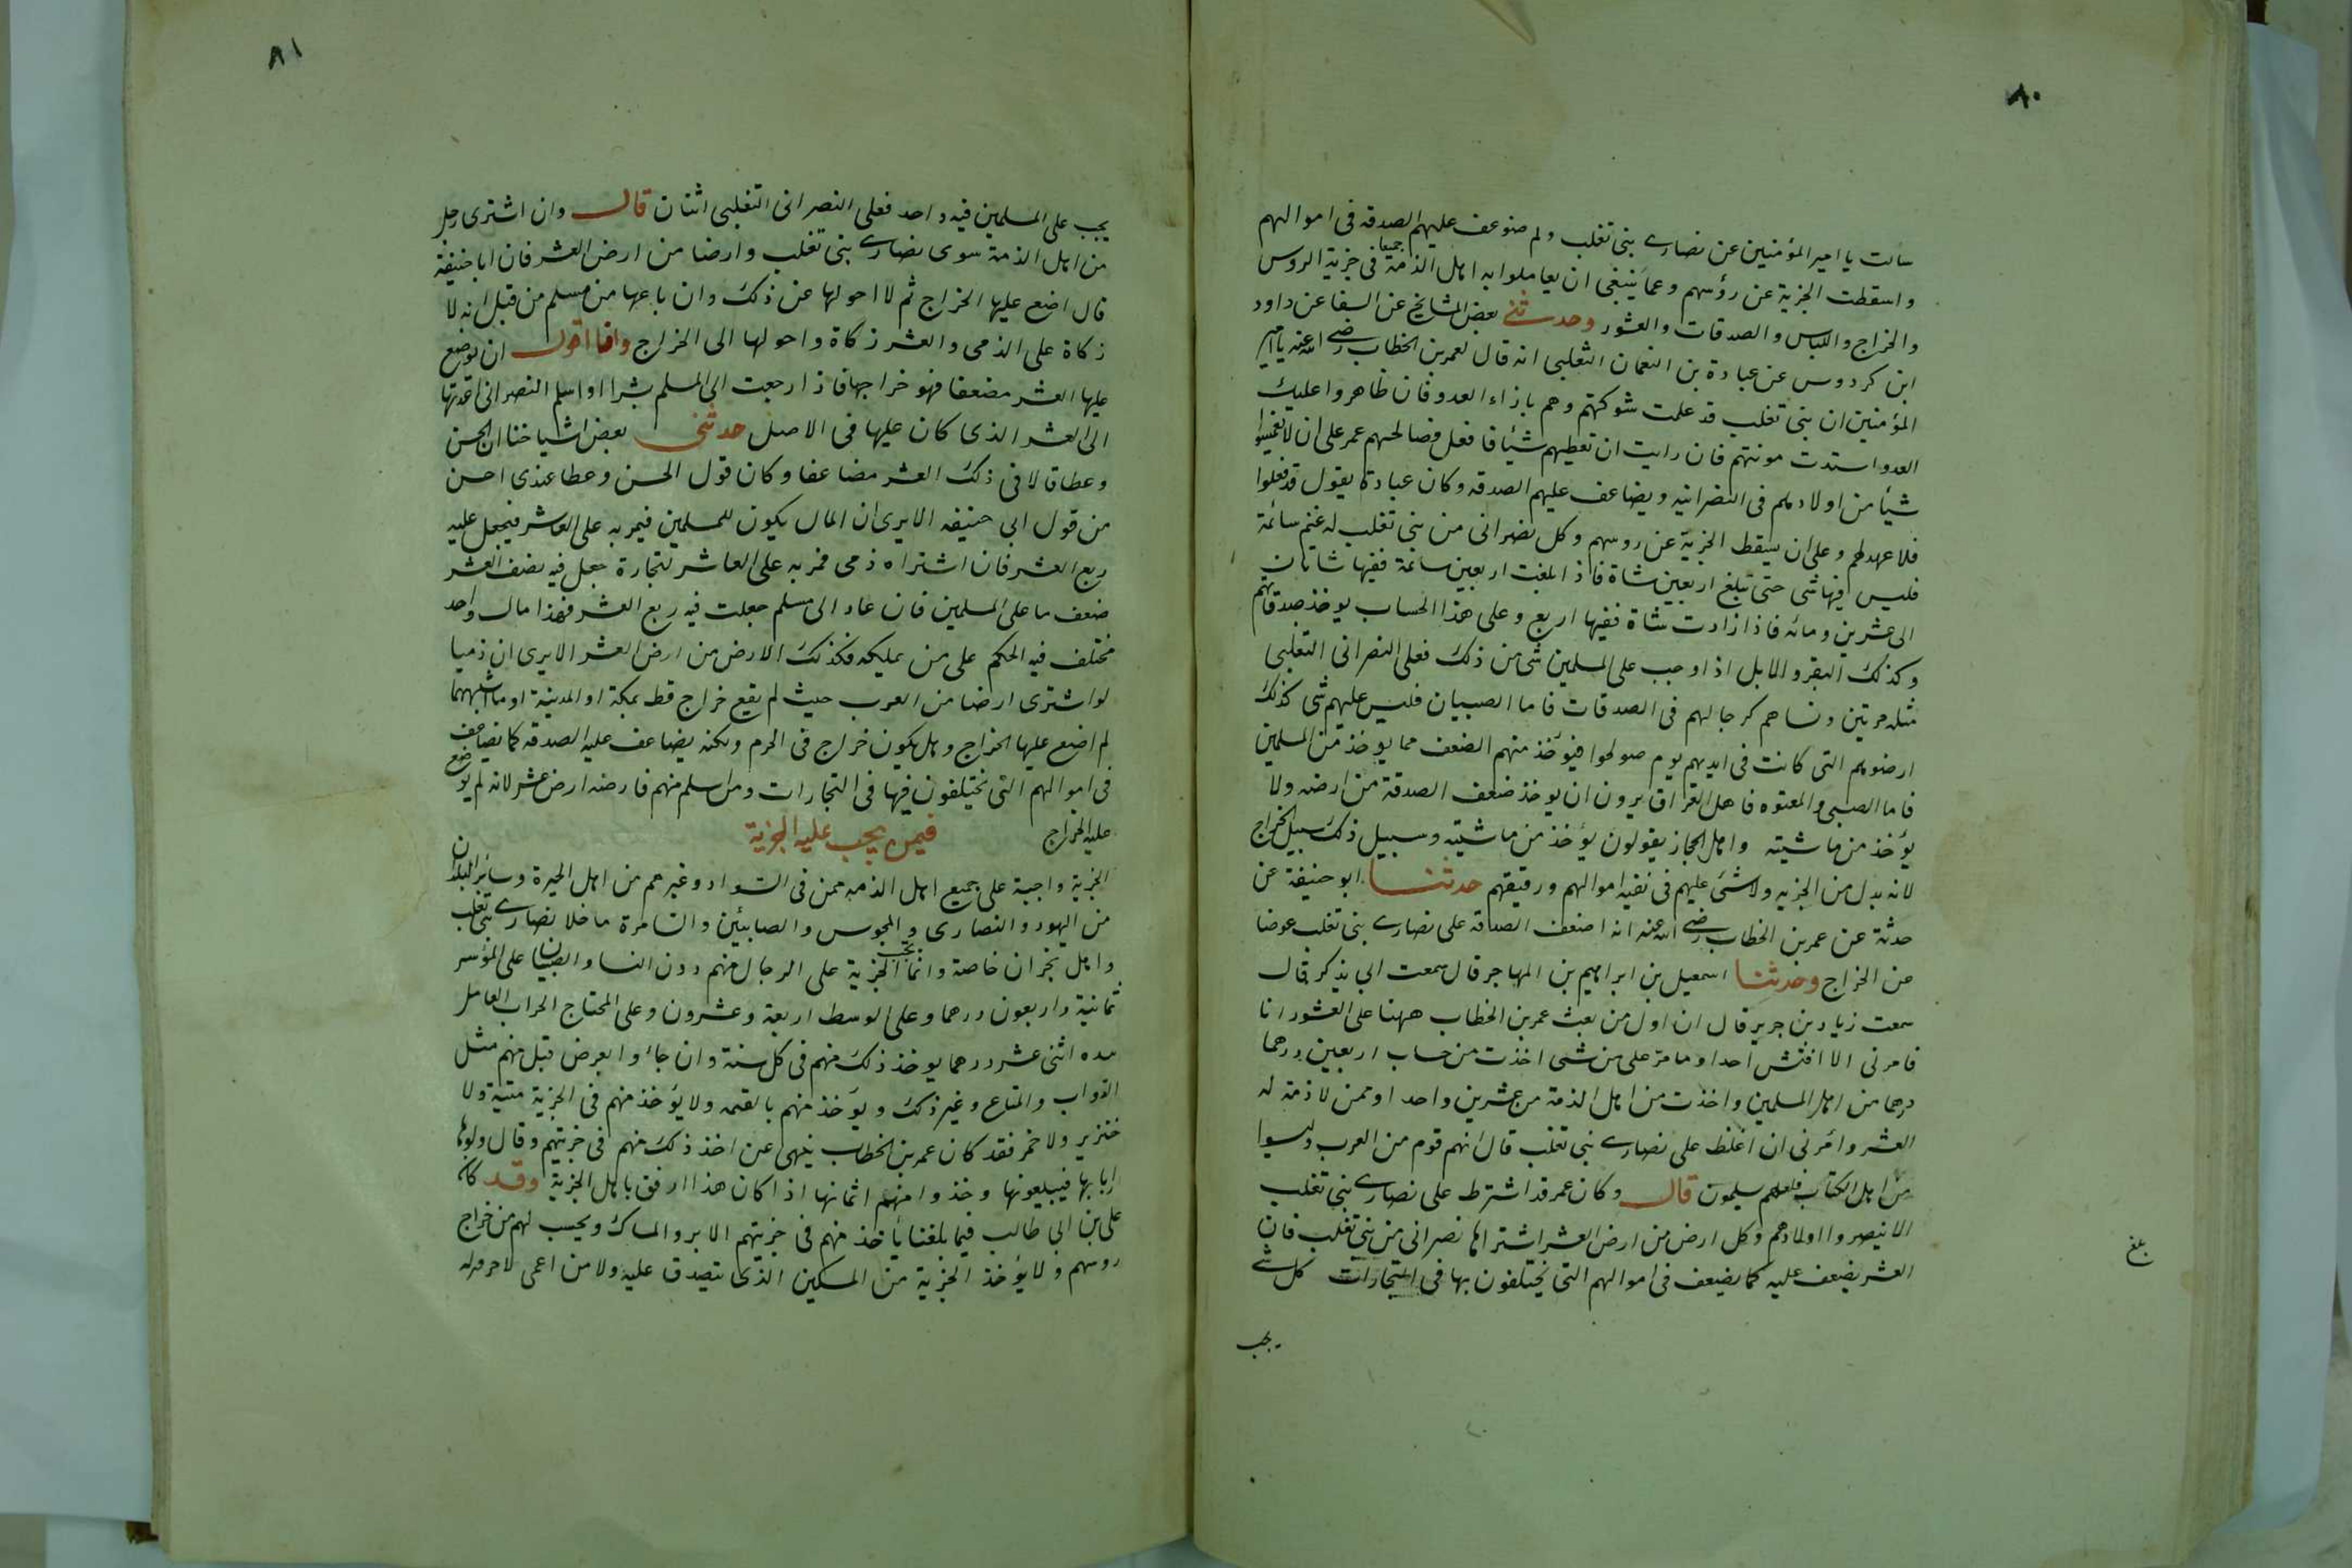 ٨٠
سالت يا امير المؤمنين عن نصارى بنى تغلب ولم ضوعف عليهم الصدقه فى اموالهم
واسقطت الجزية عن رؤسهم وعما ينبغى ان يعاملوا به اهل الذمة جميعا فى جزية الروس
والخراج واللباس والصدقات والعشور وحدثنى بعض المشايخ عن السفاح عن داود
ابن كردوس عن عبادة بن النعمان التغلبى انه قال لعمر بن الخطاب رضى الله عنه يا امير
المؤمنين ان بنى تغلب قد علمت شوكتهم وهم بازاء العدو فان ظاهروا عليك
العدو استدت مونتهم فان رايت ان تعطيهم شيئا فافعل فصالحهم عمر على ان لا تغمسوا
شيأ من اولادهم فى النصرانيه ويضاعف عليهم الصدقه وكان عبادة يقول قد فعلوا
فلا عهد لهم وعلى ان يسقط الجزية عن روسهم وكل نصرانى من بنى تغلب له غنم سائمة
فليس فيها شى حتى تبلغ اربعين شاة فاذا بلغت اربعين سائمة ففيها شاتان
الى عشرين ومائه فاذا زادت شاة ففيها اربع وعلى هذا الحساب يوخذ صدقاتهم
وكذلك البقر والابل اذا وجب على المسلمين شى من ذلك فعلى النصرانى التغلبى
مثله مرتين ونساهم كرجالهم فى الصدقات فاما الصبيان فليس عليهم شى كذلك
ارضوهم التى كانت فى ايديهم يوم صولحوا فيؤخذ منهم الضعف مما يوخذ من المسلمين
فاما الصبى والمعتوه فاهل العراق يرون ان يوخذ ضعف الصدقة من ارضه ولا
يؤخذ من ماشيته واهل الحجاز يقولون يؤخذ من ماشيته وسبيل ذلك سبيل الخراج
لانه بدل من الجزيه ولا شئ عليهم فى بقيه اموالهم ورقيقهم حدثنا ابو حنيفة عن
حدثه عن عمر بن الخطاب رضى الله عنه انه اضعف الصدقه على نصارى بنى تغلب عوضا
من الخراج وحدثنا اسمعيل بن ابراهيم بن المهاجر قال سمعت ابى يذكر قال
سمعت زياد بن جرير قال ان اول من بعث عمر بن الخطاب ههنا على العشور انا
فامرنى الا افتش احدا وما مر على من شى اخذت من حساب اربعين درهما
درهما من اهل المسلمين واخذت من اهل الذمة من عشرين واحد او ممن لا ذمة له
العشر وامرنى ان اغلظ على نصارى بنى تغلب قال انهم قوم من العرب وليسوا
من اهل الكتاب فلعلهم يسلمون قال وكان عمر قد اشترط على نصارى بنى تغلب
الا ينصروا اولادهم وكل ارض من ارض العشر اشتراها نصرانى من بنى تغلب فان
العشر يضعف عليه كما يضعف فى اموالهم التى يختلفون بها فى التجارات كل شى
بلغ
يجب
٨١
يجب على المسلمين فيه واحد فعلى النصرانى التغلبى اثنان قال وان اشترى رجل
من اهل الذمة سوى نصارى بنى تغلب وارضا من ارض العشر فان ابا حنيفة
قال اضع عليها الخراج ثم لا احولها عن ذلك وان باعها من مسلم من قبل انه لا
زكاة على الذمى والعشر زكاة واحولها الى الخراج وانا اقول ان يوضع
عليها العشر مضعفا فهو خراجها فاذا رجعت الى المسلم بشرا او اسلم النصرانى اعدتها
الى العشر الذى كان عليها فى الاصل حدثنى بعض اشياخنا ان الحسن
وعطا قالا فى ذلك العشر مضاعفا وكان قول الحسن وعطا عندى احسن
من قول ابى حنيفه الا يرى ان المال يكون للمسلمين فيمر به على العاشر فيجعل عليه
ربع العشر فان اشتراه ذمى فمر به على العاشر لتجارة جعل فيه نصف العشر
ضعف ما على المسلمين فان عاد الى مسلم جعلت فيه ربع العشر فهذا مال واحد
مختلف فيه الحكم على من يملكه فكذلك الارض من ارض العشر الا يرى ان ذميا
لو اشترى ارضا من العرب حيث لم يقع خراج قط بمكة او المدينة او ما اشبههما
لم اضع عليها الخراج وهل يكون خراج فى الحرم ولكنه يضاعف عليه الصدقه كما يضاعف
فى اموالهم التى يختلفون فيها فى التجارات ومن اسلم منهم فارضه ارض عشر لانه لم يوضع
عليه الخراج فيمن يجب عليه الجزية
الجزية واجبة على جميع اهل الذمه ممن فى السواد وغيرهم من اهل الحيرة وسائر البلدان
من اليهود والنصارى والمجوس والصابئين والسامرة ما خلا نصارى بنى تغلب
واهل نجران خاصة وانما تجب الجزية على الرجال منهم دون النسا والصبيان على المؤسر
ثمانية واربعون درهما وعلى الوسط اربعة وعشرون وعلى المحتاج الحراث العامل
بيده اثنى عشر درهما يوخذ ذلك منهم فى كل سنة وان جاؤا بعرض قبل منهم مثل
الدواب والمتاع وغير ذلك ويؤخذ منهم بالقيمه ولا يؤخذ منهم فى الجزية ميتة ولا
خنزير ولا خمر فقد كان عمر بن الخطاب ينهى عن اخذ ذلك منهم فى جزيتهم وقال ولوها
اربابها فيبيعونها وخذوا منهم اثمانها اذا كان هذا ارفق باهل الجزية وقد كان
على بن ابى طالب فيما بلغنا يأخذ منهم فى جزيتهم الابر والمسال ويحسب لهم من خراج
روسهم ولا يؤخذ الجزية من المسكين الذى يتصدق عليه ولا من اعمى لا حرفه له